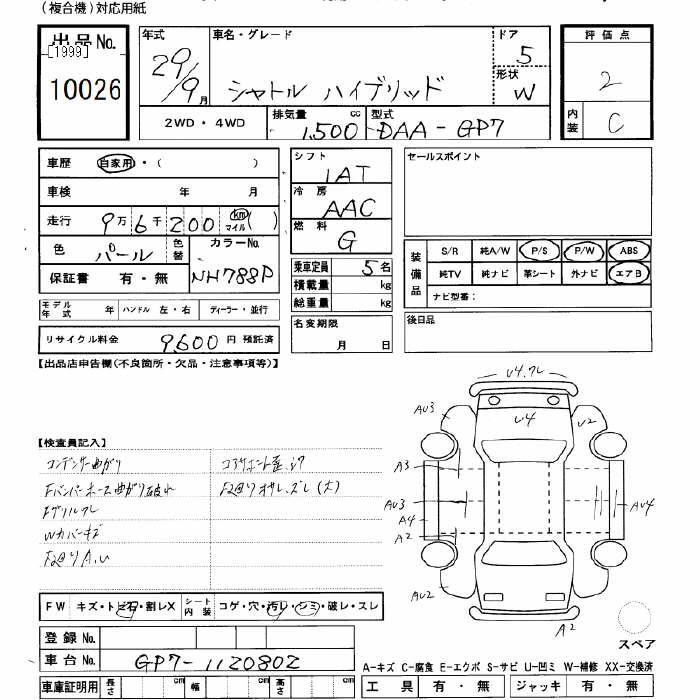 (複合機)対応用紙
出品No.
[1999]
10026
年式
29/9月
車名・グレード
シャトル ハイブリッド
ドア
5
形状
W
評価点
2
内装
C
2WD・4WD
排気量
1,500 cc
型式
DAA-GP7
車歴
自家用・( )
車検 年 月
走行 9万6千200 km マイル( )
色 パール 色替
カラーNo.
NH788P
保証書 有・無
モデル年式 年 ハンドル 左・右 ディーラー・並行
リサイクル料金 9,600円 預託済
シフト
IAT
冷房
AAC
燃料
G
乗車定員 5名
積載量 kg
総重量 kg
名変期限
月 日
セールスポイント
装備品
S/R 純A/W P/S P/W ABS
純TV 純ナビ 革シート 外ナビ エアB
ナビ型番:
後日品
【出品店申告欄(不良箇所・欠品・注意事項等)】
【検査員記入】
コンデンサー曲がり
コアサポート歪、サ
Fバンパーホース曲がり破れ
F廻りオサレ、ズレ(大)
Fグリルワレ
Wカバーキズ
F廻りA.U
U4.ワレ
AU3
U4
U2
A3
AU3
A4
A2
AU4
AU2
A2
スペア
FW キズ・トビ石・割レX
シート内装 コゲ・穴・汚レ・シミ・破レ・スレ
登録No.
車台No. GP7-1120802
車庫証明用 長さ cm 幅 cm 高さ cm
A-キズ C-腐食 E-エクボ S-サビ U-凹ミ W-補修 XX-交換済
工具 有・無 ジャッキ 有・無